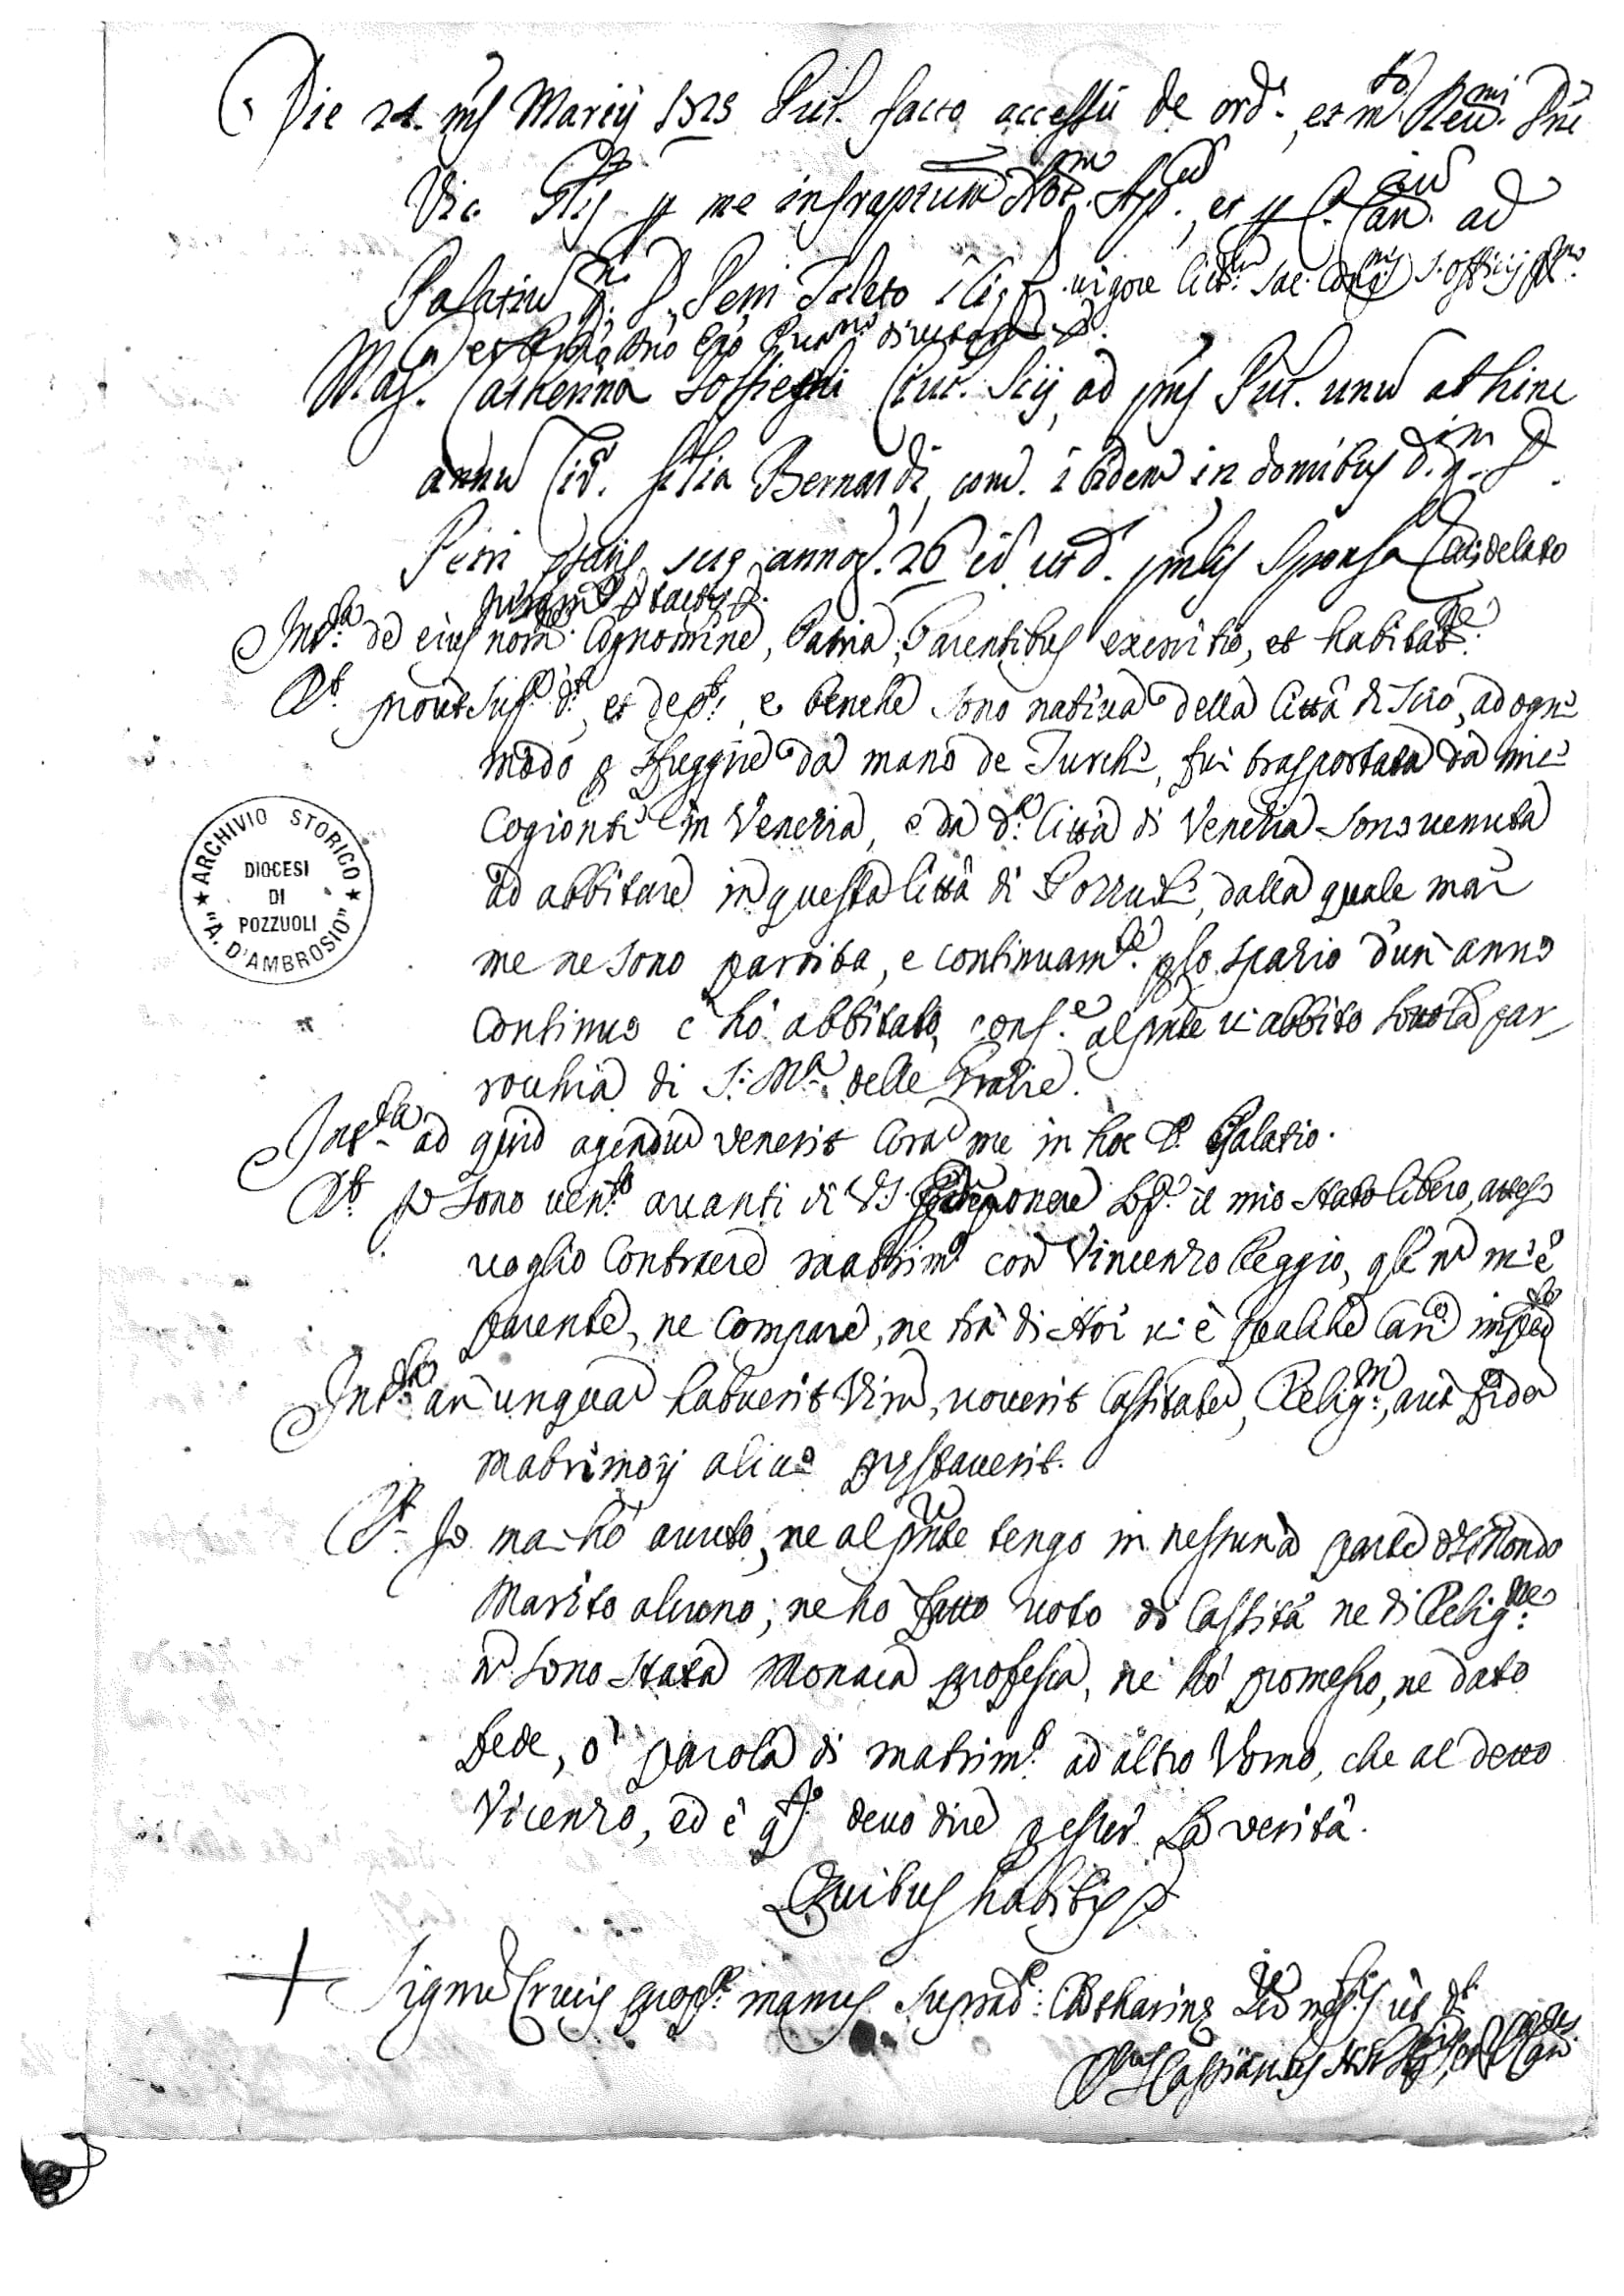 Die 24. m̃s Martij 1525 Put. facto accessu de ord.e et m.to Reu.mi Dñi
Vic. Glis p me infraptum Not.m Ap.cu, et p C. Can.ciu ad
Palatiu q. D. Petri Toleto vigore litt. Sac. Cong. S. Officij
Mag. Catherina Civit. Scij, ad pñs Put. unu ab hinc
annu Cit. filia Bernardi, com. ibidem in domibus d. q.m D.
Petri etatis sue annoȝ. 26 ut d. sponsa Cui delato
juram.to tactis p.
Int.ta de eius nom.e Cognomine, Patria, Parentibus exercitio, et habitat.ne
R.t prout sup.a d.a, et dep.t, e benche sono nativa della Città di Scio, ad ogni
modo p sfuggire da mano de Turchi, fui trasportata da miei
Cogionti in Venezia, e da d.a Città di Venezia sono venuta
ad abbitare in questa Città di Pozzuoli, dalla quale mai
me ne sono partita, e continuam.te p lo spazio d'un anno
Continuo c' hò abbitato, conf.e al pñte vi abbito sotto la par
rochia di S. M.a delle Grazie.
Int.ta ad quid agendu venerit Cora me in hoc Palatio.
R.t Io sono ven.ta avanti di VS. p deponere il mio stato libero, atteso
voglio Contraere matrim.o con Vincenzo Reggio, q̃le nõ m'è
parente, ne Compare, ne trà di Noi vi è qualche Can.co imped.to
Int.ta an unquam habuerit Viru, vouerit Castitate, Relig.m, aut fide
matrimonij alicuo prestauerit.
R.t Io mai hò avuto, ne al pñte tengo in nessuna parte del Mondo
Marito alcuno, ne hò fatto voto di Castità ne di Relig.ne
nõ sono stata Monaca professa, ne hò promesso, ne dato
fede, ò parola di matrim.o ad altro Vomo, che al detto
Vicenzo, ed è q.to devo dire p esser la verità.
Quibus habitis p
+ Signu Crucis prop.e manus suprad.e Catharine ut d.t
Not. Ap.
ARCHIVIO STORICO
DIOCESI
DI
POZZUOLI
"A. D'AMBROSIO"